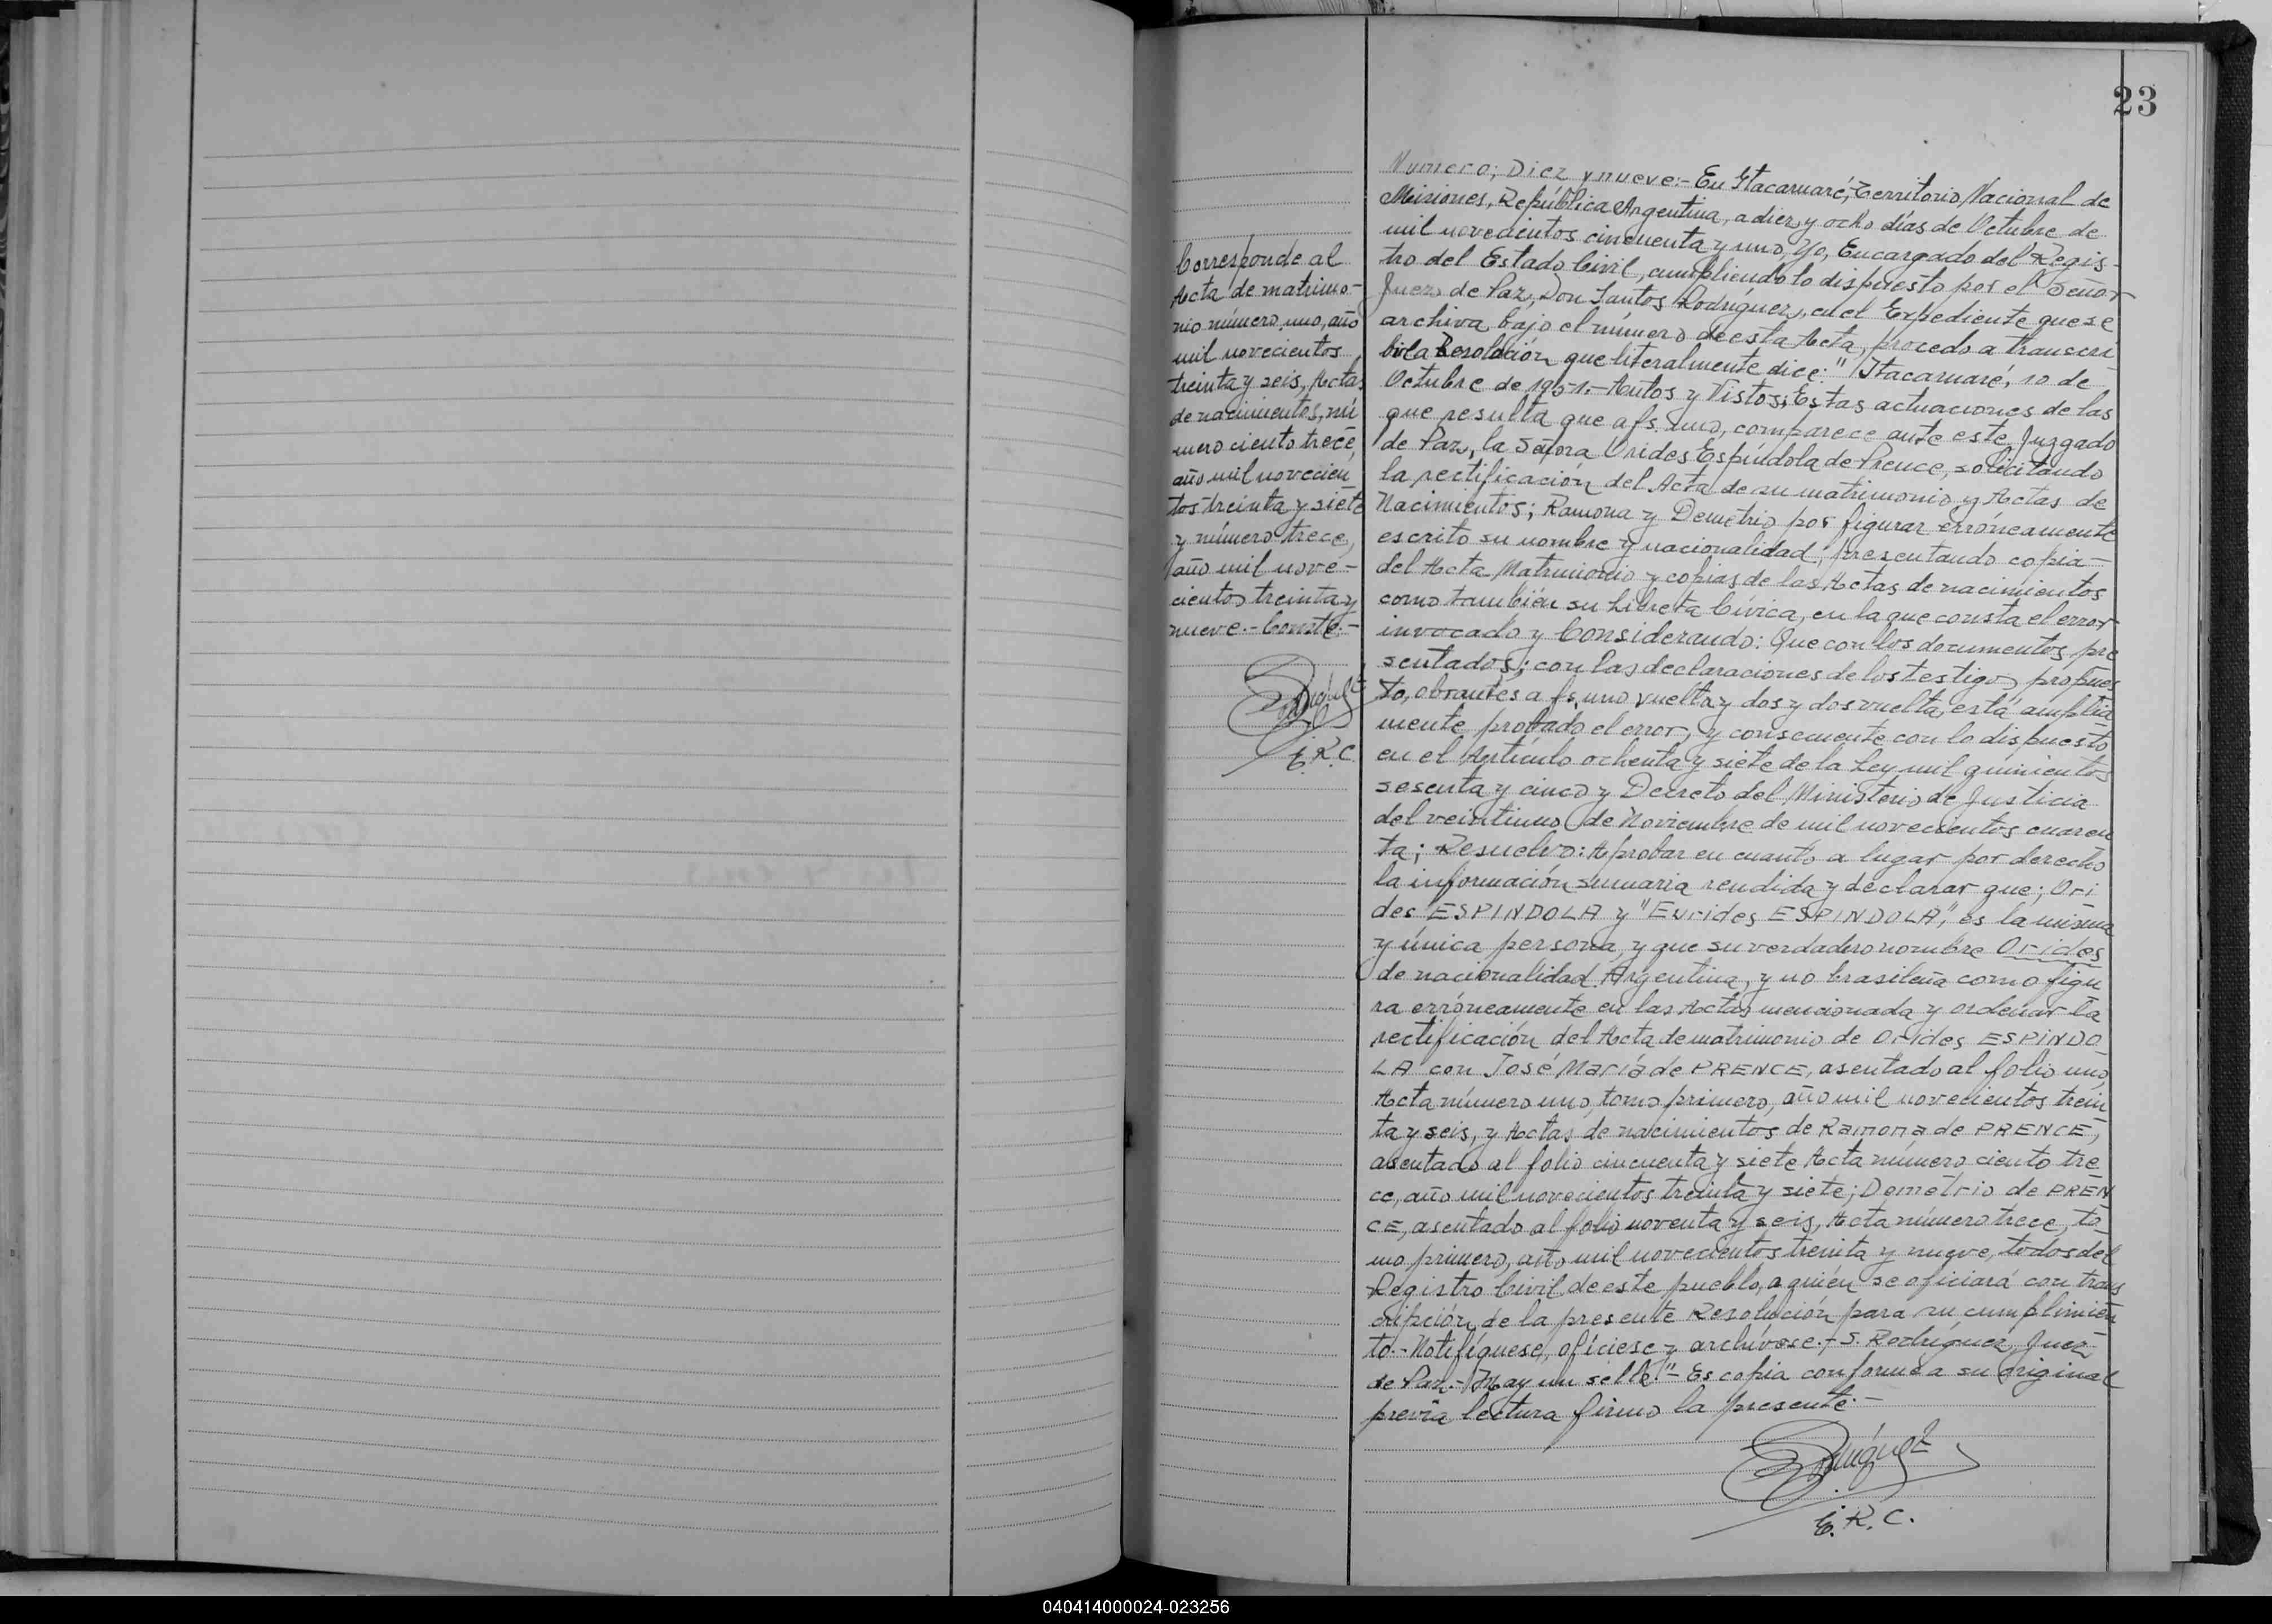 23
Corresponde al
Acta de matrimo-
nio número uno, año
mil novecientos
treinta y seis, Actas
de nacimientos, nú
mero ciento trece,
año mil novecien
tos treinta y siete
y número trece,
año mil nove-
cientos treinta y
nueve.- Conste.-
E.R.C.
Numero; Diez y nueve:- En Itacaruaré, Territorio Nacional de
Misiones, República Argentina, a diez y ocho días de Octubre de
mil novecientos cincuenta y uno, Yo, Encargado del Regis-
tro del Estado Civil, cumpliendo lo dispuesto por el Señor
Juez de Paz, Don Santos Rodríguez, en el Expediente que se
archiva bajo el número de esta Acta, procedo a transcri
bir la Resolución que literalmente dice: "Itacaruaré, 10 de
Octubre de 1951.- Autos y Vistos; Estas actuaciones de las
que resulta que a fs. uno, comparece ante este Juzgado
de Paz, la Señora Orides Espíndola de Prence, solicitando
la rectificación del Acta de su matrimonio y Actas de
Nacimientos; Ramona y Demetrio por figurar erróneamente
escrito su nombre y nacionalidad, presentando copia
del Acta Matrimonio y copias de las Actas de nacimientos
como también su Libreta Cívica, en la que consta el error
invocado y Considerando: Que con los documentos pre
sentados; con las declaraciones de los testigos propues
to, obrantes a fs. uno vuelta y dos y dos vuelta, está amplia
mente probado el error, y consecuente con lo dispuesto
en el Artículo ochenta y siete de la Ley mil quinientos
sesenta y cinco y Decreto del Ministerio de Justicia
del veintiuno de Noviembre de mil novecientos cuaren
ta; Resuelvo: Aprobar en cuanto a lugar por derecho
la información sumaria rendida y declarar que; Ori
des "ESPINDOLA y "Eurides ESPINDOLA", es la misma
y única persona, y que su verdadero nombre Orides
de nacionalidad Argentina, y no brasileña como figu
ra erróneamente en las Actas mencionada y ordenar la
rectificación del Acta de matrimonio de Orides ESPINDO
LA con José María de PRENCE, asentado al folio uno,
Acta número uno, tomo primero, año mil novecientos trein
ta y seis, y Actas de nacimientos de Ramona de PRENCE,
asentado al folio cincuenta y siete Acta número ciento tre
ce, año mil novecientos treinta y siete; Demetrio de PREN
CE, asentado al folio noventa y seis, Acta número trece, to
mo primero, año mil novecientos treinta y nueve, todos del
Registro Civil de este pueblo, a quién se oficiará con trans
cripción de la presente Resolución para su cumplimien
to.- Notifíquese, ofíciese y archívese.- S. Rodríguez, Juez
de Paz.- Hay un sello."- Es copia conforme a su original
previa lectura firmo la presente.-
E.R.C.
040414000024-023256